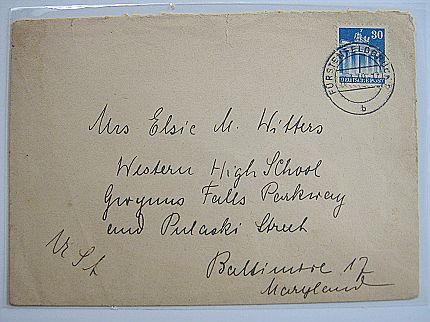 30
DEUTSCHE POST
FÜRSTENFELDBRUCK
b
Mrs Elsie M. Witters
Western High School
Gwynns Falls Parkway
and Pulaski Street
USA
Baltimore 17
Maryland